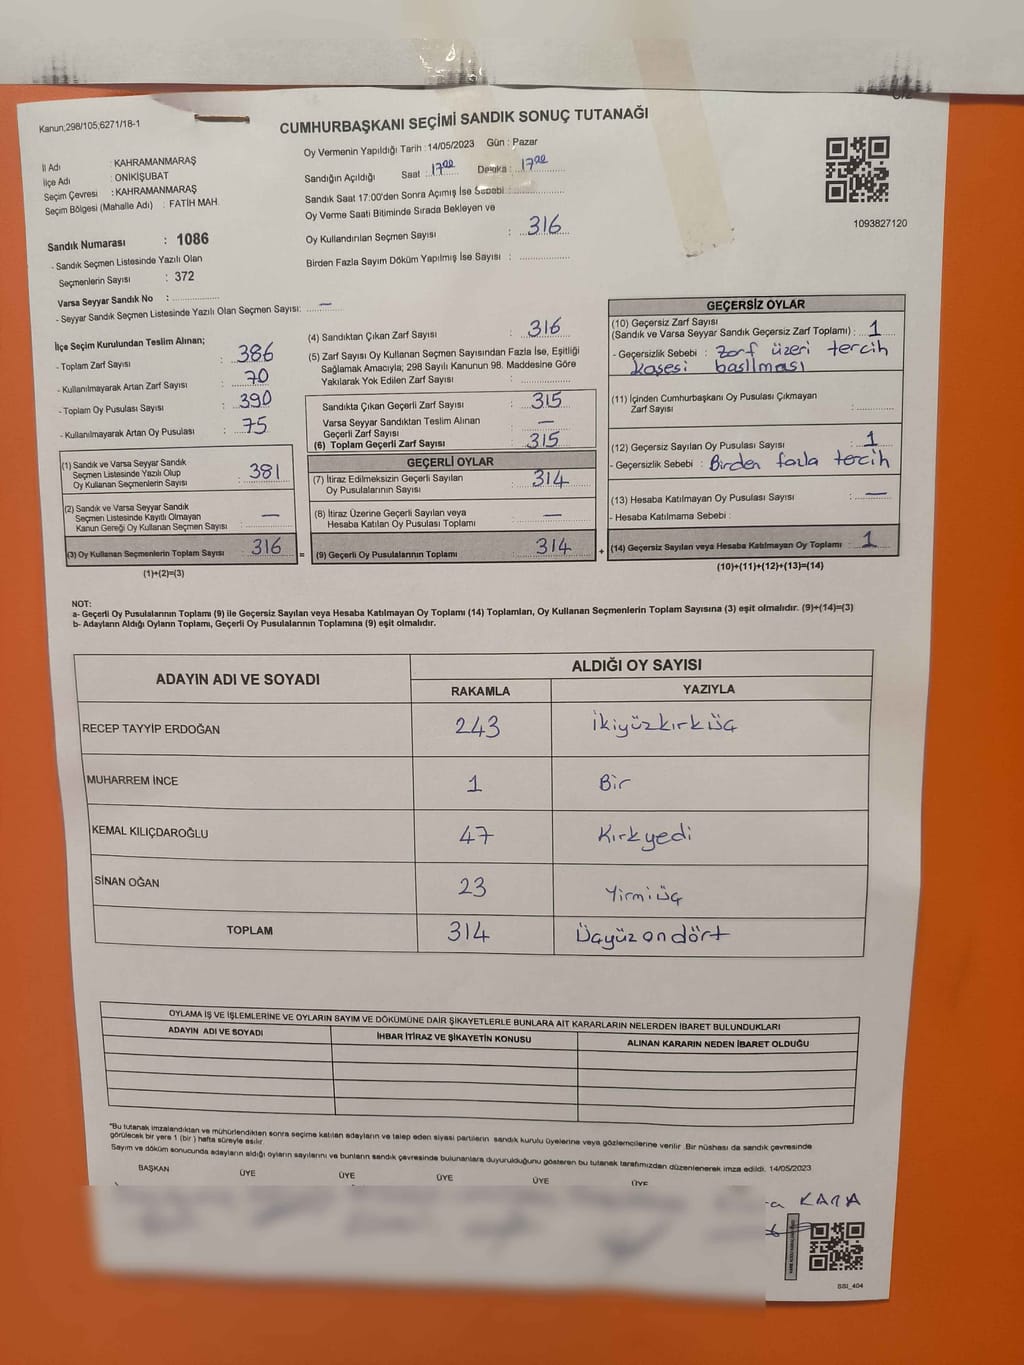 Kanun;298/105;6271/18-1
CUMHURBAŞKANI SEÇİMİ SANDIK SONUÇ TUTANAĞI
İl Adı : KAHRAMANMARAŞ
İlçe Adı : ONİKİŞUBAT
Seçim Çevresi : KAHRAMANMARAŞ
Seçim Bölgesi (Mahalle Adı) : FATİH MAH.
Oy Vermenin Yapıldığı Tarih : 14/05/2023 Gün : Pazar
Sandığın Açıldığı Saat : 17⁰⁰ Dakika : 17⁰⁰
Sandık Saat 17:00'den Sonra Açımış İse Sebebi :
Oy Verme Saati Bitiminde Sırada Bekleyen ve
Oy Kullandırılan Seçmen Sayısı : 316
Birden Fazla Sayım Döküm Yapılmış İse Sayısı :
1093827120
Sandık Numarası : 1086
- Sandık Seçmen Listesinde Yazılı Olan
Seçmenlerin Sayısı : 372
Varsa Seyyar Sandık No :
- Seyyar Sandık Seçmen Listesinde Yazılı Olan Seçmen Sayısı: —
İlçe Seçim Kurulundan Teslim Alınan;
- Toplam Zarf Sayısı : 386
- Kullanılmayarak Artan Zarf Sayısı : 70
- Toplam Oy Pusulası Sayısı : 390
- Kullanılmayarak Artan Oy Pusulası : 75
(1) Sandık ve Varsa Seyyar Sandık
Seçmen Listesinde Yazılı Olup
Oy Kullanan Seçmenlerin Sayısı : 381
(2) Sandık ve Varsa Seyyar Sandık
Seçmen Listesinde Kayıtlı Olmayan
Kanun Gereği Oy Kullanan Seçmen Sayısı : —
(3) Oy Kullanan Seçmenlerin Toplam Sayısı 316
(1)+(2)=(3)
=
(4) Sandıktan Çıkan Zarf Sayısı : 316
(5) Zarf Sayısı Oy Kullanan Seçmen Sayısından Fazla İse, Eşitliği
Sağlamak Amacıyla; 298 Sayılı Kanunun 98. Maddesine Göre
Yakılarak Yok Edilen Zarf Sayısı :
Sandıkta Çıkan Geçerli Zarf Sayısı : 315
Varsa Seyyar Sandıktan Teslim Alınan
Geçerli Zarf Sayısı : —
(6) Toplam Geçerli Zarf Sayısı : 315
GEÇERLİ OYLAR
(7) İtiraz Edilmeksizin Geçerli Sayılan
Oy Pusulalarının Sayısı : 314
(8) İtiraz Üzerine Geçerli Sayılan veya
Hesaba Katılan Oy Pusulası Toplamı : —
(9) Geçerli Oy Pusulalarının Toplamı : 314
+
GEÇERSİZ OYLAR
(10) Geçersiz Zarf Sayısı
(Sandık ve Varsa Seyyar Sandık Geçersiz Zarf Toplamı) : 1
- Geçersizlik Sebebi : Zarf üzeri tercih
kaşesi basılması
(11) İçinden Cumhurbaşkanı Oy Pusulası Çıkmayan
Zarf Sayısı :
(12) Geçersiz Sayılan Oy Pusulası Sayısı : 1
- Geçersizlik Sebebi : Birden fazla tercih
(13) Hesaba Katılmayan Oy Pusulası Sayısı : —
- Hesaba Katılmama Sebebi :
(14) Geçersiz Sayılan veya Hesaba Katılmayan Oy Toplamı : 1
(10)+(11)+(12)+(13)=(14)
NOT:
a- Geçerli Oy Pusulalarının Toplamı (9) ile Geçersiz Sayılan veya Hesaba Katılmayan Oy Toplamı (14) Toplamları, Oy Kullanan Seçmenlerin Toplam Sayısına (3) eşit olmalıdır. (9)+(14)=(3)
b- Adayların Aldığı Oyların Toplamı, Geçerli Oy Pusulalarının Toplamına (9) eşit olmalıdır.
ADAYIN ADI VE SOYADI
ALDIĞI OY SAYISI
RAKAMLA YAZIYLA
RECEP TAYYİP ERDOĞAN 243 İkiyüzkırküç
MUHARREM İNCE 1 Bir
KEMAL KILIÇDAROĞLU 47 Kırkyedi
SİNAN OĞAN 23 Yirmiüç
TOPLAM 314 Üçyüzondört
OYLAMA İŞ VE İŞLEMLERİNE VE OYLARIN SAYIM VE DÖKÜMÜNE DAİR ŞİKAYETLERLE BUNLARA AİT KARARLARIN NELERDEN İBARET BULUNDUKLARI
ADAYIN ADI VE SOYADI İHBAR İTİRAZ VE ŞİKAYETİN KONUSU ALINAN KARARIN NEDEN İBARET OLDUĞU
"Bu tutanak imzalandıktan ve mühürlendikten sonra seçime katılan adayların ve talep eden siyasi partilerin sandık kurulu üyelerine veya gözlemcilerine verilir. Bir nüshası da sandık çevresinde
görülecek bir yere 1 (bir) hafta süreyle asılır.
Sayım ve döküm sonucunda adayların aldığı oyların sayılarını ve bunların sandık çevresinde bulunanlara duyurulduğunu gösteren bu tutanak tarafımızdan düzenlenerek imza edildi. 14/05/2023
BAŞKAN ÜYE ÜYE ÜYE ÜYE ÜYE
KARA
SSI_404